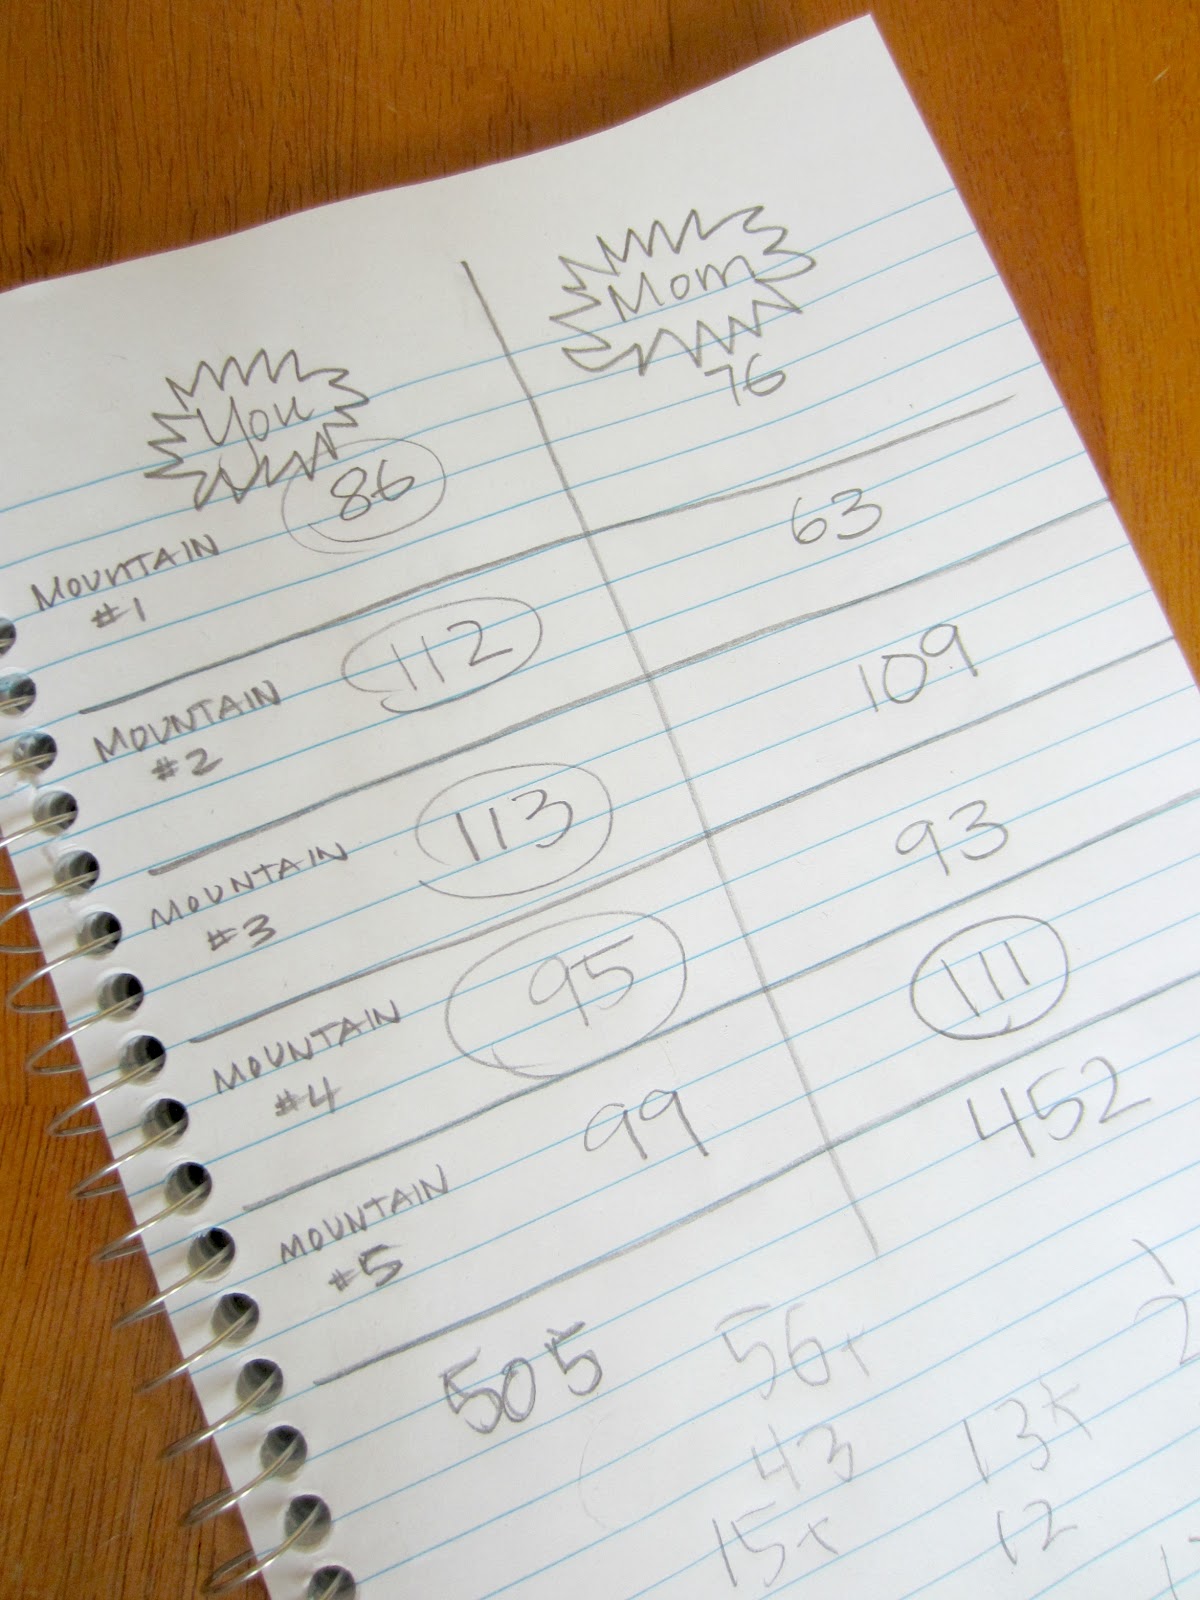 You Mom
MOUNTAIN #1 86 76
MOUNTAIN #2 112 63
MOUNTAIN #3 113 109
MOUNTAIN #4 95 93
MOUNTAIN #5 99 111
505 452
56x 1
43 13x 2
15x 12